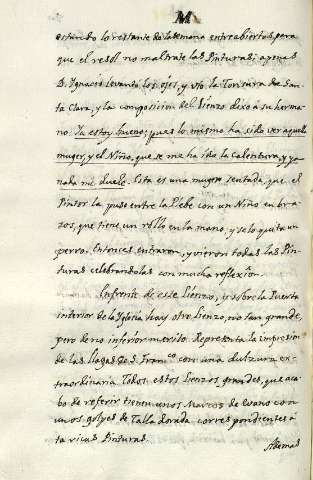 M
estando lo restante de la semana entreabiertos, para
que el resol no maltrate las Pinturas; apenas
D. Ignacio levantó los ojos, y vio la Tontura de San-
ta Clara, y la composicion del Lienzo dixo a su herma-
no. Ya estoy bueno; pues lo mismo ha sido ver aquella
muger, y el Niño, que se me ha ido la Calentura, y ya
nada me duele. Esta es una muger sentada, que el
Pintor la puso entre la Plebe con un Niño en bra-
zos, que tiene un rollo en la mano, y se lo quita un
perro. Entonces entraron, y vieron todas las Pin-
turas celebrandolas con mucha reflexîon.
Enfrente de este Lienzo, y sobre la Puerta
interior de la Yglesia hay otro Lienzo, no tan grande,
pero de no inferior merito. Representa la impresion
de las llagas de S. Franco. con una dulzura ex-
traordinaria Todos estos Lienzos grandes, que aca-
bo de referir tienen unos Marcos de Evano con
unos golpes de Talla dorada correspondientes á
ta ricas Pinturas.
Ademas